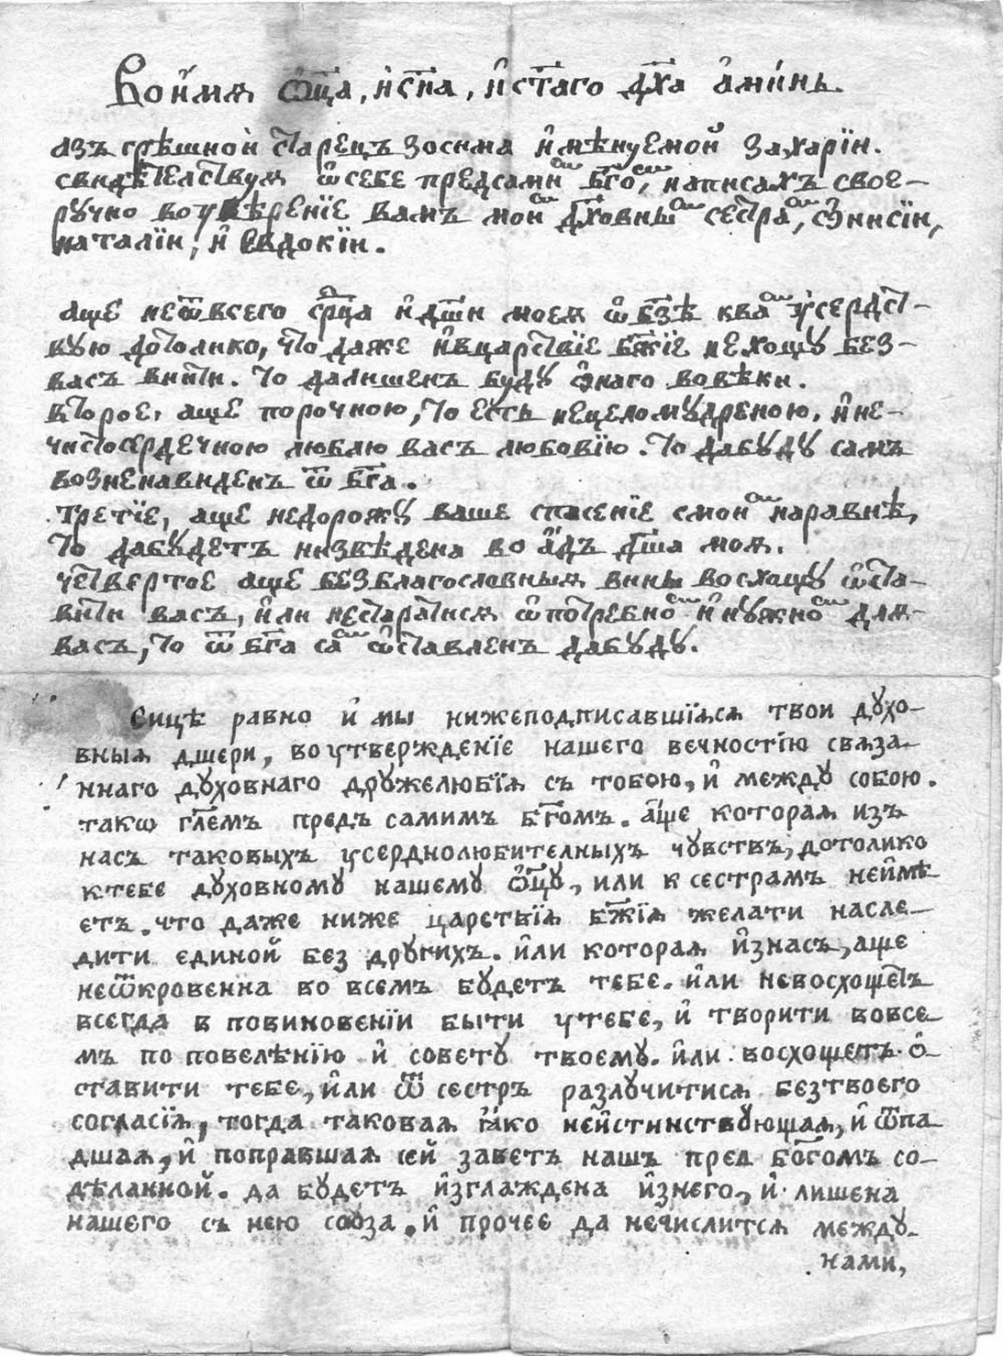 Во и҆́мѧ ѻ҆ц҃а, и҆ сн҃а, и҆ ст҃аго дх҃а а҆ми́нь.
азъ грѣшной старецъ зосима и҆мѣнуемой захарїи.
свидѣтелствуѧ ѡ҆ себе предсамиⷨ бг҃оⷨ, написахъ свое-
ручно во увѣренїе вамъ моиⷨ дх҃овныⷨ сестраⷨ,
наталїи, и҆ евдокїи.
аще неѿвсего ср҃ца и҆ дш҃и моеѧ ѡ҆ бз҃ѣ кваⷨ усердст-
вую дотолико, что даже и҆вцарствїе бж҃їе нехощꙋ без-
васъ внити. то далишенъ будꙋ ѻ҆наго вовѣки.
второе, аще порочною, то есть нецеломꙋдреною, и҆ не-
чистосердечною люблю васъ любовїю. то дабꙋдꙋ самъ
возненавиденъ ѿ бг҃а.
третїе, аще недорожꙋ ваше спасенїе смоиⷨ наравнѣ,
то дабꙋдетъ низвѣдена во а҆дъ дш҃а моѧ.
четвертое аще безблагословныѧ вины восхощꙋ ѡ҆ста-
вити васъ, и҆ли нестаратисѧ ѡ҆ потребноⷨ и҆ нꙋжноⷨ длѧ-
васъ, то ѿ бг҃а саⷨ ѡ҆ставленъ дабꙋдꙋ.
Сицѣ равно и҆ мы нижеподписавшїѧсѧ твои дꙋхо-
вныѧ дщери, во утвержденїе нашего вечностїю свѧза-
ннаго дꙋховнаго дрꙋжелюбїѧ съ тобою, и҆ междꙋ собою.
такѡ гл҃емъ предъ самимъ бг҃омъ. а҆ще котораѧ изъ
насъ таковыхъ усерднолюбителныхъ чувствъ, дотолико
ктебе дꙋховномꙋ нашемꙋ ѻ҆ц҃ꙋ, или к сестрамъ неи҆мѣ
етъ. что даже ниже царствїѧ бж҃їѧ желати насле-
дити единой без дрꙋгихъ. и҆ли котораѧ и҆знасъ, аще
неѿкровенна во всемъ бꙋдетъ тебе. и҆ли невосхощетъ
всегда в повиновенїи быти утебе, и҆ творити вовсе
мъ по повелѣнїю и҆ советꙋ твоемꙋ. и҆ли восхощетъ ѻ҆-
ставити тебе, и҆ли ѿ сестръ разлꙋчитисѧ безтвоего
согласїѧ, тогда таковаѧ ꙗ҆ко неи҆стинствꙋющаѧ, и҆ ѿпа
дшаѧ, и҆ поправшаѧ сей заветъ нашъ пред бг҃омъ со-
дѣланной. да бꙋдетъ и҆зглаждена и҆знего, и҆ лишена
нашего съ нею союза. и҆ прочее да нечислитсѧ междꙋ-
нами,